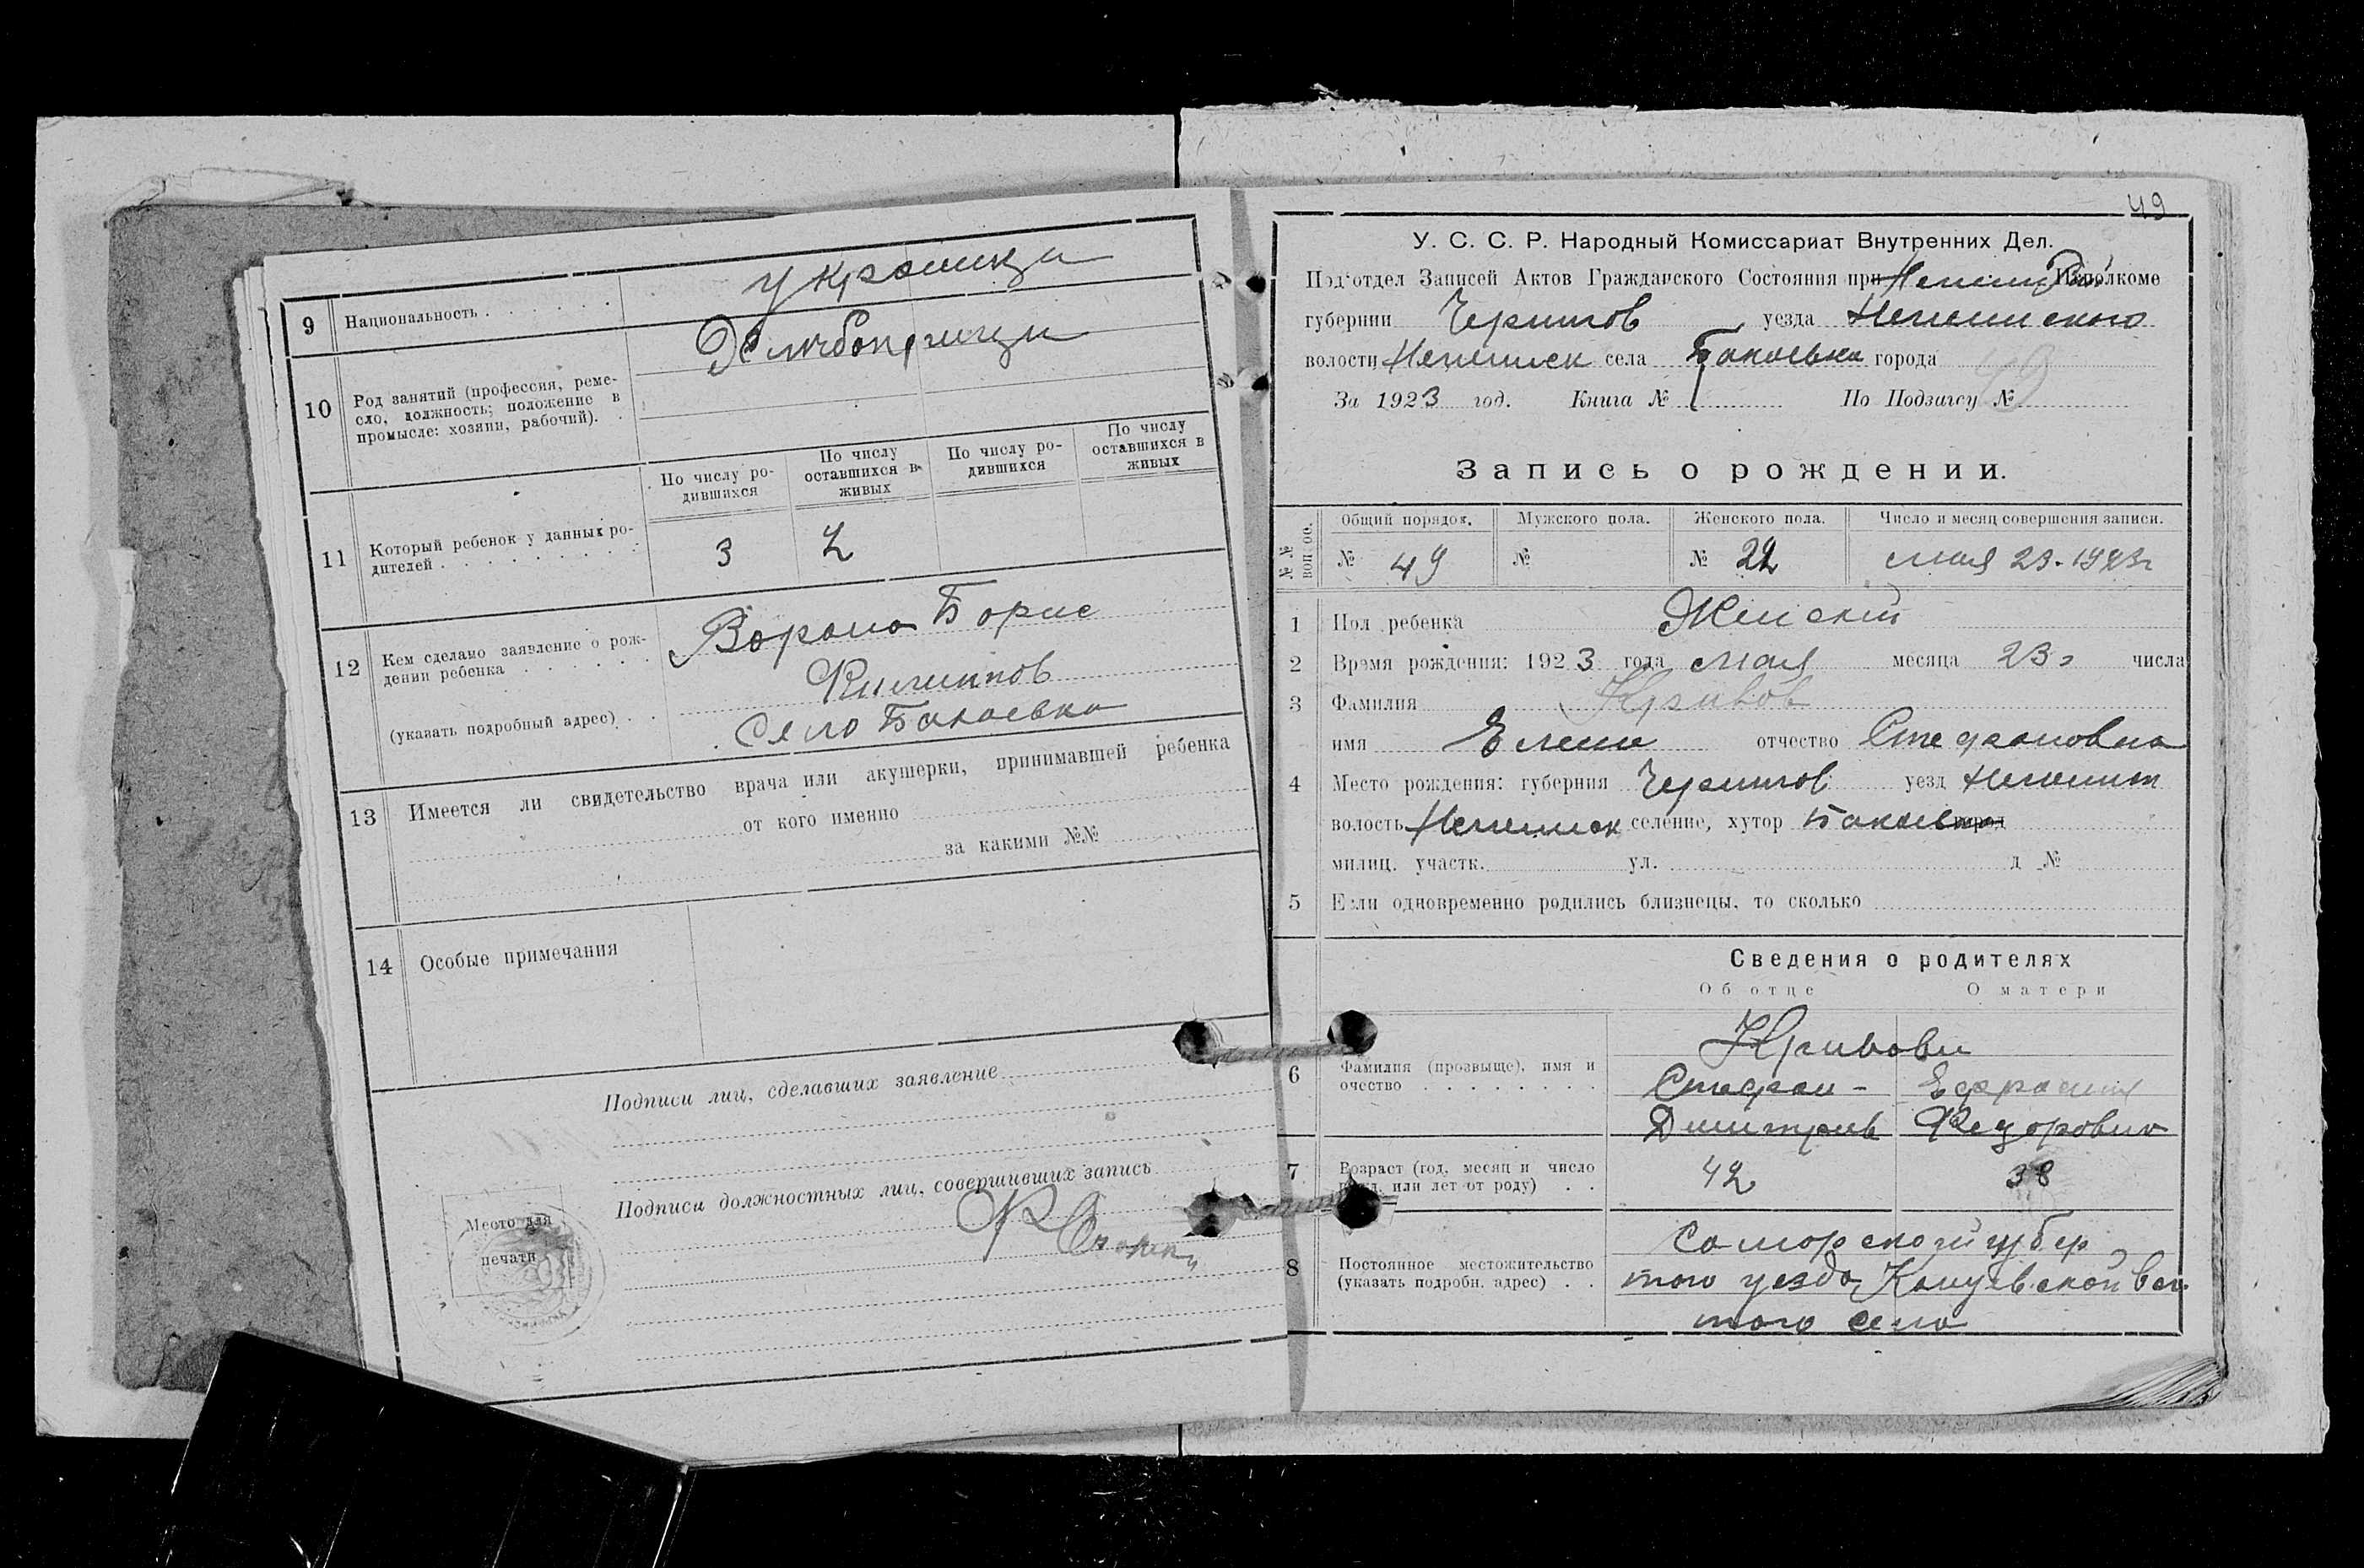 9 Национальность . . . . . . украинци
10 Род занятий (профессия, реме-
сло, должность; положение в
промысле: хозяин, рабочий). .
По числу ро-
дившихся
По числу
оставшихся в
живых
По числу ро-
дившихся
По числу
оставшихся в
живых
11 Который ребенок у данных ро-
дителей . . . . . . . . . 3 2
12 Кем сделано заявление о рож-
дении ребенка . . . . . . Ворона Борис
Филиппов
(указать подробный адрес) . . Село Бакаевка
13 Имеется ли свидетельство врача или акушерки, принимавшей ребенка
от кого именно
за какими №№
14 Особые примечания
Подписи лиц, сделавших заявление
Подписи должностных лиц, совершивших запись
Место для
печати
49
У. С. С. Р. Народный Комиссариат Внутренних Дел.
Под'отдел Записей Актов Гражданского Состояния при Исполкоме
губернии Чернигов уезда
волости села Бакаевка города
За 1923 год. Книга № По Подзагсу №
Запись о рождении.
№№ воп ос.
Общий порядок. Мужского пола. Женского пола. Число и месяц совершения записи.
№ 49 № № 22 мая 23. 1923г
1 Пол ребенка Женский
2 Время рождения: 1923 года мая месяца 23 числа
3 Фамилия Кривов
имя Елена отчество Стефановна
4 Место рождения: губерния Чернигов уезд
волость селение, хутор Бакаевка город
милиц. участк. ул. д №
5 Если одновременно родились близнецы, то сколько
Сведения о родителях
Об отце О матери
Кривови
6 Фамилия (прозвыще), имя и
очество . . . . . . . . Стефан - Ефросиния
Дмитриев Федоровна
7 Возраст (год, месяц и число
рожд. или лет от роду) . . 42 38
8 Постоянное местожительство
(указать подробн. адрес) . . Самарской губер
того уезда вол.
того село